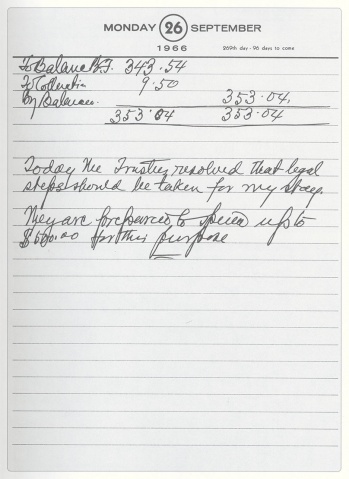 MONDAY 26 SEPTEMBER
1966
269th day - 96 days to come
To Balance B.F. 343.54
To Collection 9.50
By Balance. 353.04.
353.04 353.04
Today the Trustees resolved that legal
steps should be taken for my stay.
They are prepared to spend up to
$500.00 for this purpose